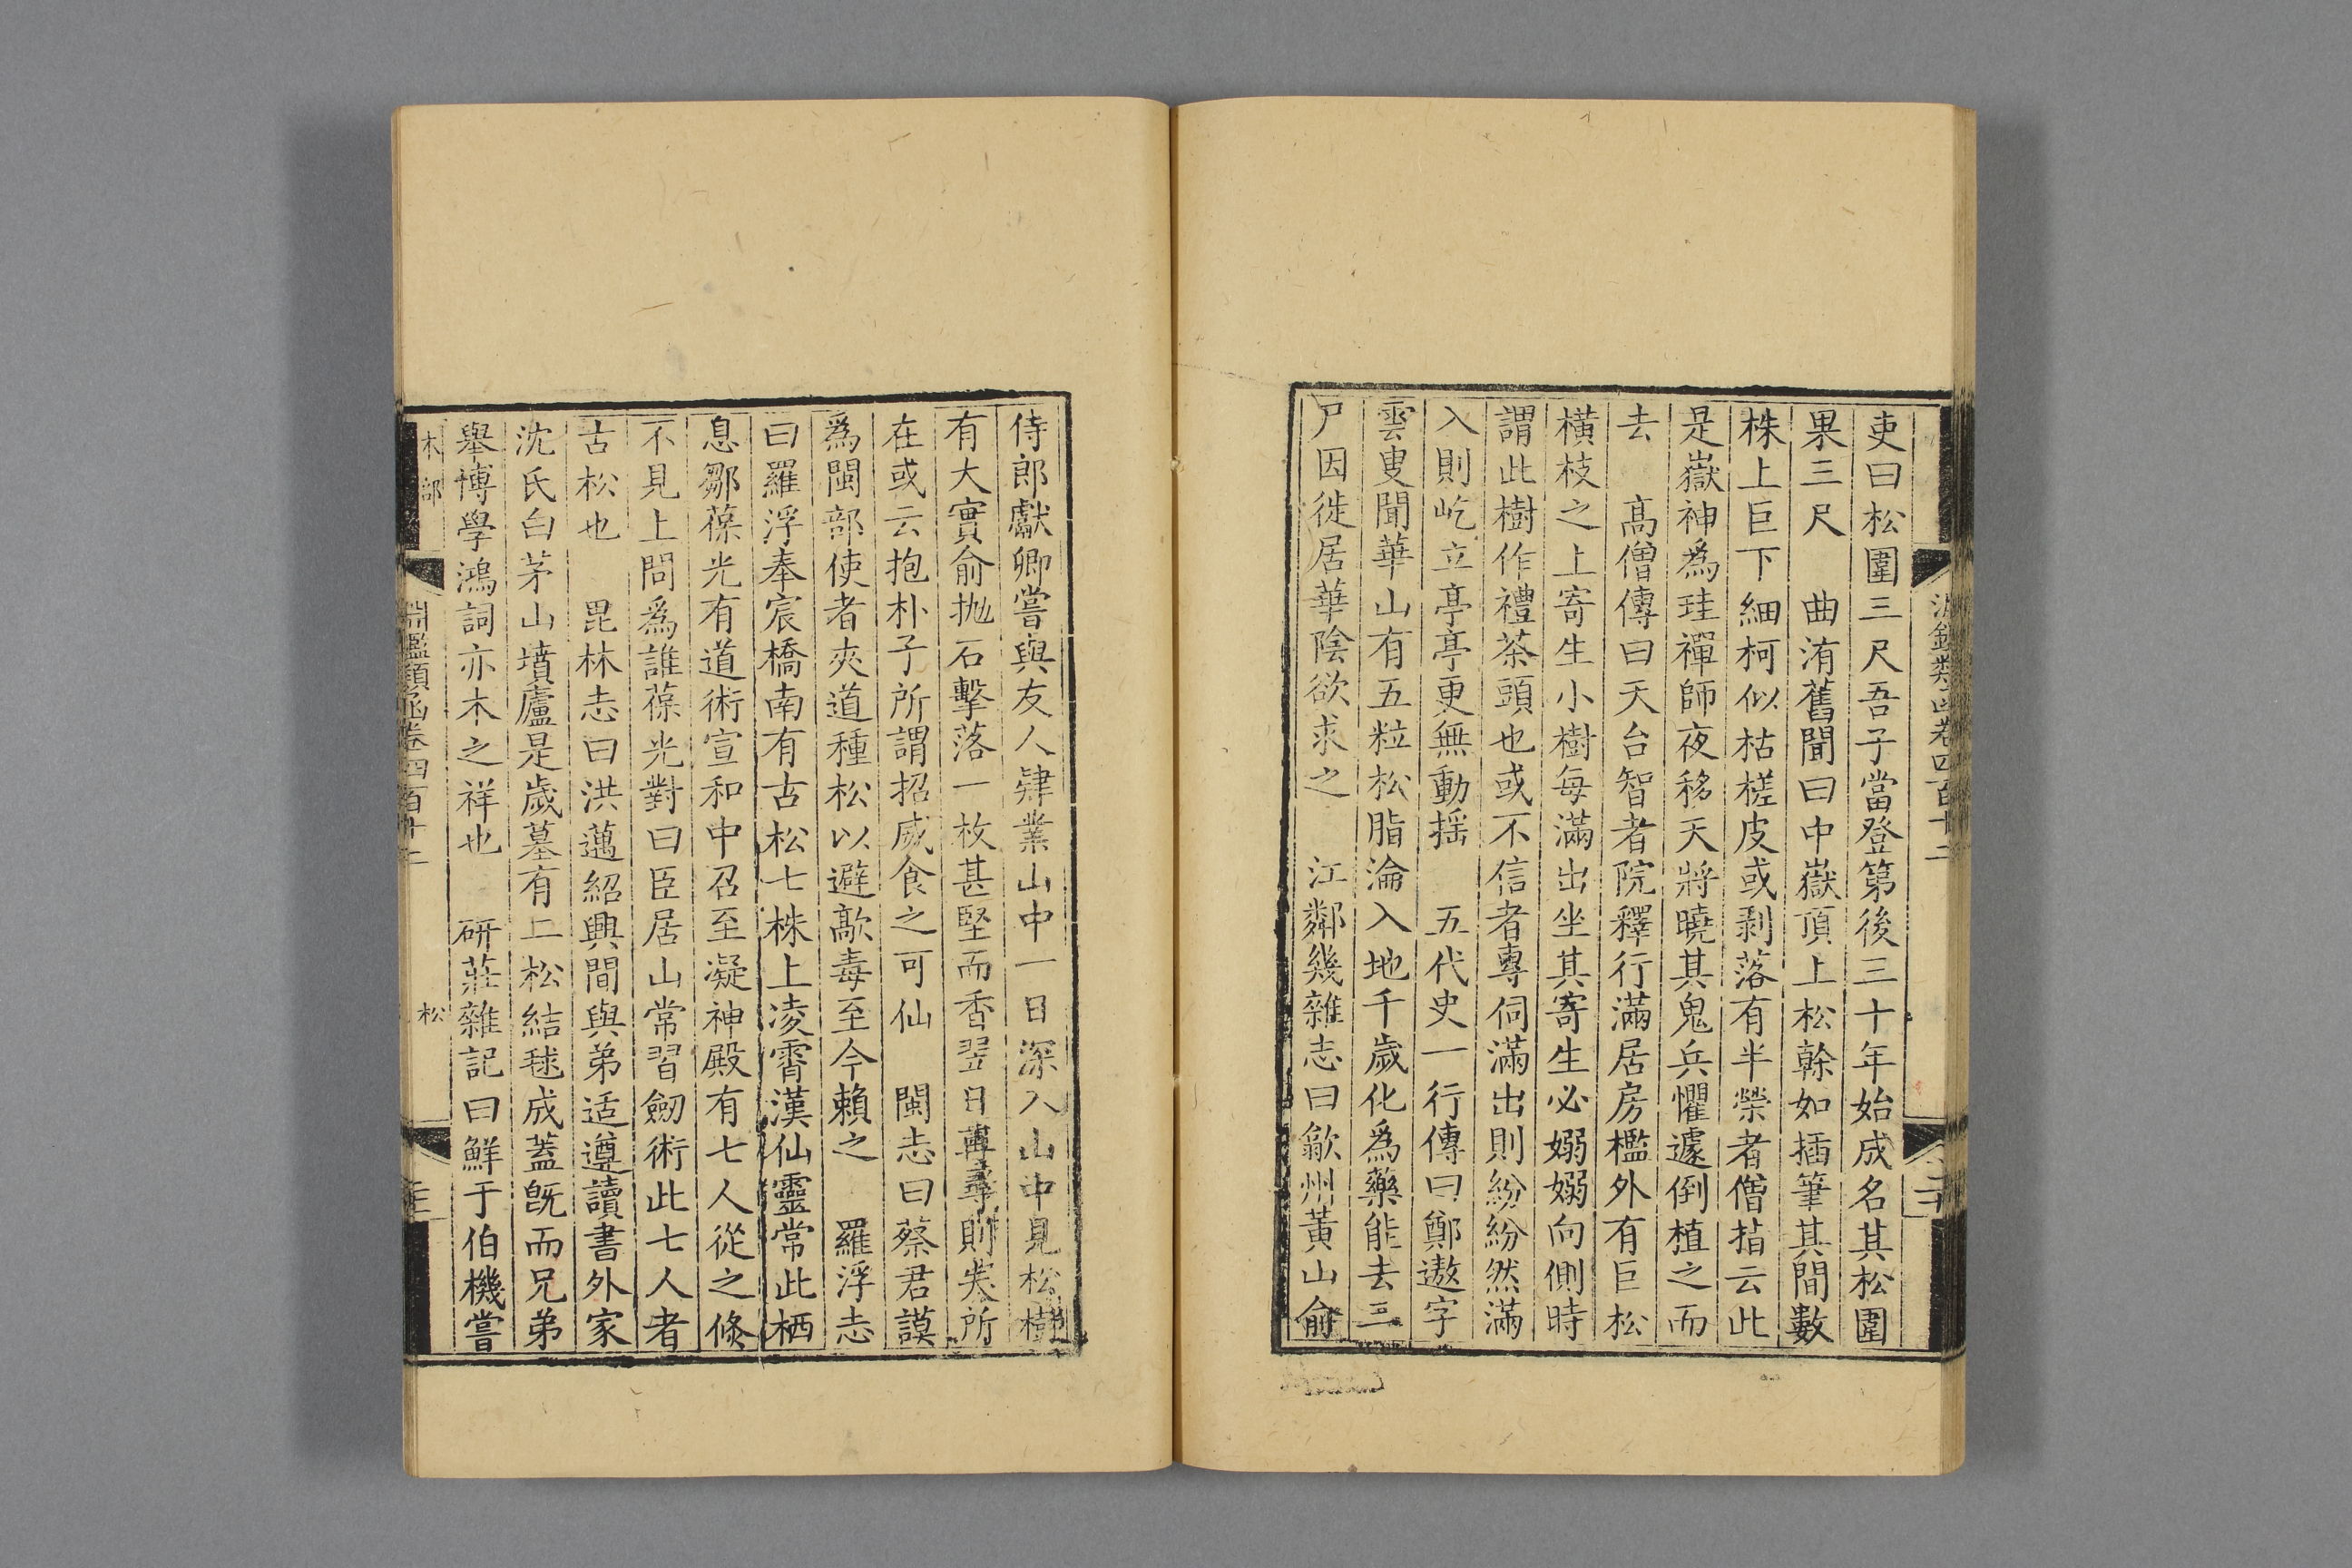 吏曰松圍三尺吾子當登第後三十年始成名其松圍
果三尺　曲洧舊聞曰中嶽頂上松榦如插筆其間數
株上巨下細柯似枯槎皮或剥落有半榮者僧指云此
是嶽神爲珪禪師夜移天將曉其鬼兵懼遽倒植之而
去　高僧傳曰天台智者院釋行滿居房檻外有巨松
橫枝之上寄生小樹每滿出坐其寄生必嫋嫋向側時
謂此樹作禮茶頭也或不信者專伺滿出則紛紛然滿
入則屹立亭亭更無動揺　五代史一行傳曰鄭遨字
雲叟聞華山有五粒松脂淪入地千歲化爲藥能去三
尸因徙居華陰欲求之　江鄰幾雜志曰歙州黃山俞
侍郎獻卿嘗與友人肄業山中一日深入山中見松樹
有大實俞抛石擊落一枚甚堅而香翌日再尋則失所
在或云抱朴子所謂招威食之可仙　閩志曰蔡君謨
爲閩部使者夾道種松以避歊毒至今賴之　羅浮志
曰羅浮奉宸橋南有古松七株上凌霄漢仙靈常此栖
息鄒葆光有道術宣和中召至凝神殿有七人從之倏
不見上問爲誰葆光對曰臣居山常習劒術此七人者
古松也　毘林志曰洪邁紹興間與弟适遵讀書外家
沈氏白茅山墳廬是歲墓有二松結毬成蓋旣而兄弟
舉博學鴻詞亦木之祥也　研莊雜記曰鮮于伯機嘗
木部
淵鑑類函卷四百十二
松